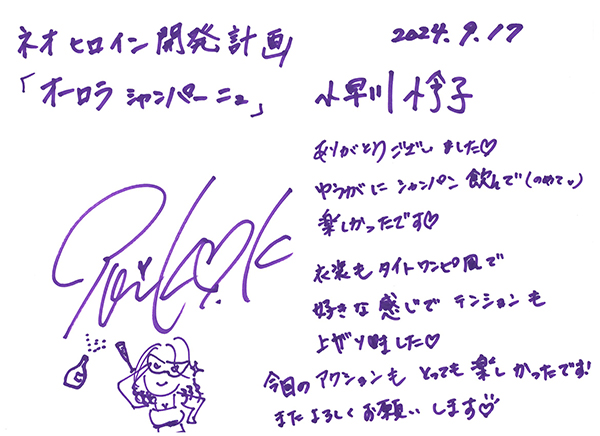 ネオヒロイン開発計画
「オーロラ シャンパーニュ」
2024.9.17
小早川怜子
ありがとうございました♡
ゆうがに シャンパン 飲んで(のめて
楽しかったです♡
衣装もタイトワンピ風で
好きな感じで テンションも
上がりました♡
今日の アクションも とっても楽しかったです!
またよろしくお願いします